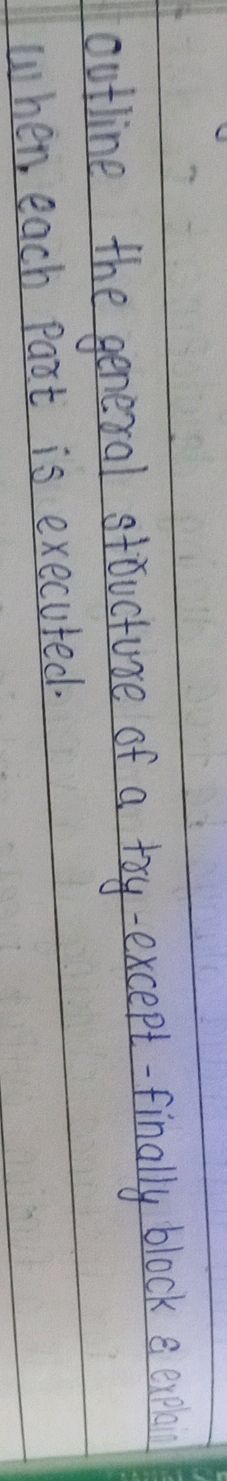 outline the general structure of a try-except-finally block & explain
when each part is executed.